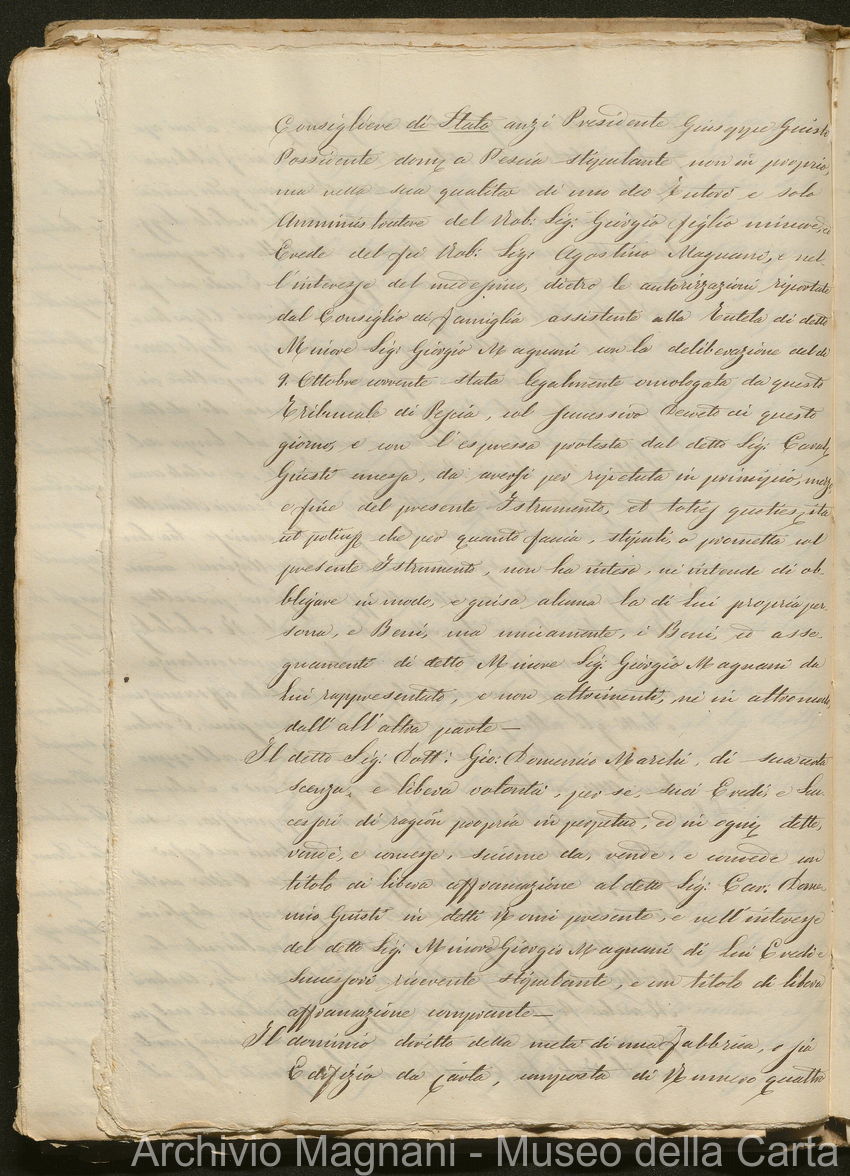 Consigliere di Stato anzi Presidente Giuseppe Giusti
Possidente dom.° a Pescia stipulante non in proprio,
ma nella sua qualità di uno dei Tutori e solo
Amministratore del Nob: Sig: Giorgio figlio minore, ed
Erede del fù Nob: Sig: Agostino Magnani, e nel-
l'interesse del medesimo, dietro le autorizzazioni riportate
dal Consiglio di famiglia assistente alla Tutela di detto
Minore Sig: Giorgio Magnani con la deliberazione del dì
9. Ottobre corrente stata legalmente omologata da questo
Tribunale di Pescia, col successivo Decreto di questo
giorno, e con l'espressa protesta dal detto Sig: Caval.
Giusti emessa, da aversi per ripetuta in principio, mezzo
e fine del presente Istrumento, et toties quoties, ita
ut potius che per quanto faccia, stipuli, o prometta col
presente Istrumento, non ha inteso, nè intende di ob-
bligare in modo, e guisa alcuna la di Lui propria per-
sona, e Beni, ma unicamente, i Beni, ed asse-
gnamenti di detto Minore Sig: Giorgio Magnani da
Lui rappresentato, e non altrimenti, nè in altro modo,
dall' all'altra parte —
Il detto Sig: Dott: Gio: Domenico Marchi, di sua certa
scenza, e libera volontà, per se, suoi Eredi, e Suc-
cessori di ragion propria in perpetuo, ed in ogni detto,
vendè, e concesse, siccome da, vende, e concede con
titolo di libera affrancazione al detto Sig: Cav: Dome-
nico Giusti in detti Nomi presente, e nell'interesse
del detto Sig: Minore Giorgio Magnani di Lui Eredi e
Successori ricevente stipulante, e con titolo di libera
affrancazione comprante —
Il dominio diretto della metà di una fabbrica, o sia
Edifizio da Carta, composta di Numero quattro
Archivio Magnani - Museo della Carta